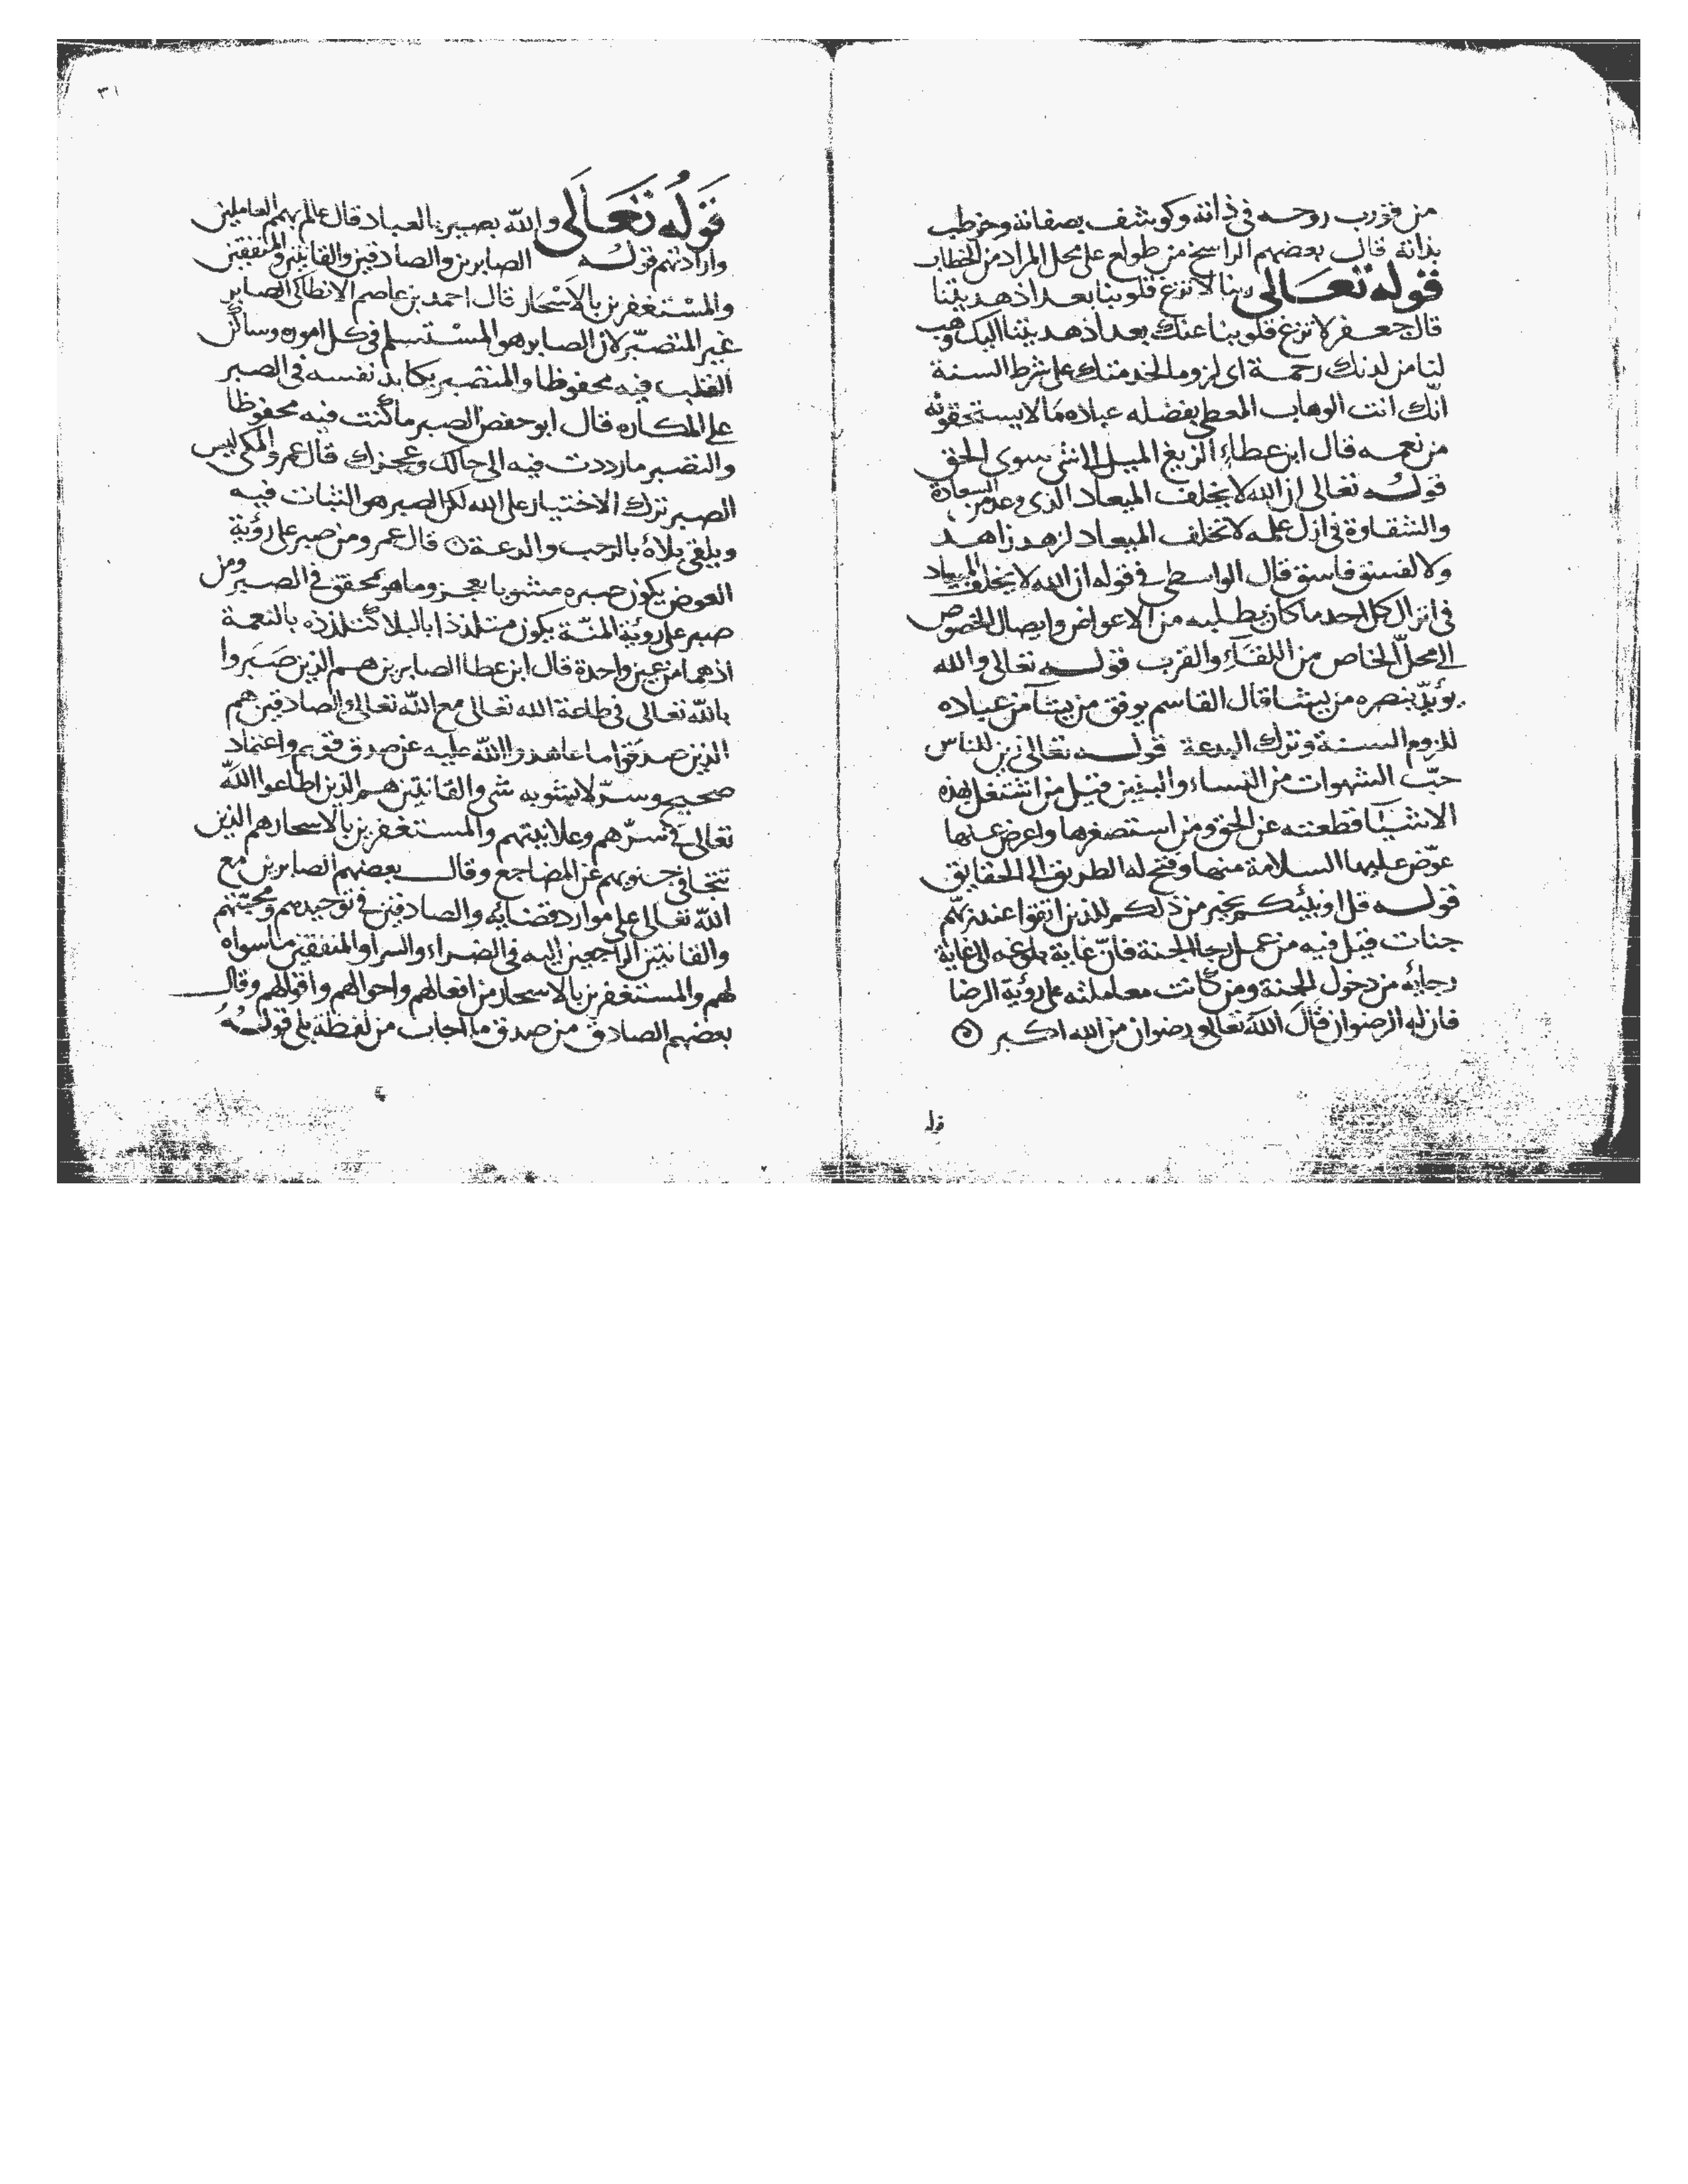 من قورب روحه في ذاته وكوشف بصفاته وخوطب
بذاته قال بعضهم الراسخ من طولع على محل المراد من الخطاب
قوله تعالى ربنا لا تزغ قلوبنا بعد اذ هديتنا
قال جعفر لا تزغ قلوبنا عنك بعد اذ هديتنا اليك وهب
لنا من لدنك رحمة اى لزوما لخدمتك على شرط السنة
انّك انت الوهاب المعطى بفضله عباده مما لا يستحقونه
من نعمه قال ابن عطاء الزيغ الميل الى شى سوى الحق
قوله تعالى ان الله لا يخلف الميعاد الذى وعد من السعادة
والشقاوة فى ازل علمه لا تخلف الميعاد لزهد زاهد
ولا لفسق فاسق قال الواسطى فى قوله ان الله لا يخلف الميعاد
فى انزال كل احد ما كان يطلبه من الاعواض وايصال الخصوص
الى محلّ الخاص من اللقاء والقرب قوله تعالى والله
يؤيّد بنصره من يشا قال القاسم يوفق من يشآ من عباده
للزوم السنة وترك البدعة قوله تعالى زين للناس
حبّ الشهوات من النساء والبنين قيل من اشتغل بهذه
الاشيآا قطعته عن الحق ومن استصغرها واعرض عنها
عوّض عليها السلامة منها وفتح له الطريق الى الحقايق
قوله قل اونبئكم بخير من ذلكم للذين اتقوا عند ربهم
جنات قيل فيه من عمل رجا الجنة فانّ غاية بلوغه الى غاية
رجائه من دخول الجنة ومن كانت معاملته على رؤية الرضا
فان له الرضوان قال الله تعالى ورضوان من الله اكبر
قوله
٣١
قوله تعالى والله بصير بالعباد قال عالم بهم العاملين
وارادتهم قوله الصابرين والصادقين والقانتين والمنفقين
والمستغفرين بالاسحار قال احمد بن عاصم الانطاكى الصابر
غير المتصبّر لان الصابر هو المستسلم فى كل اموره وساكن
القلب فيه محفوظا والمتصبر يكابد نفسه فى الصبر
على المكاره قال ابو حفص الصبر ما كنت فيه محفوظا
والتصبر ما رددت فيه الى حالك وعجزك قال عمرو المكى ليس
الصبر ترك الاختيار على الله لكن الصبر هو الثبات فيه
ويلقى بلاه بالرحب والدعة قال عمر ومن صبر على رؤية
العوض يكون صبره مشوبا بعجز وما هو بمحقق فى الصبر ومن
صبر على رؤية المنّة يكون متلذذا بالبلا كتلذذه بالنعمة
اذ هما من عين واحدة قال ابن عطا الصابرين هم الذين صَبَروا
بالله تعالى فى طاعة الله تعالى مع الله تعالى والصادقين هم
الذين صدقوا ما عاهدوا الله عليه عن صدق قويم واعتماد
صحيح وسرّ لا يشوبه شى والقانتين هم الذين اطاعوا الله
تعالى فى سرّهم وعلانيتهم والمستغفرين بالاسحار هم الذين
تتجافى جنوبهم عن المضاجع وقال بعضهم الصابرين مع
الله تعالى على موارد قضائه والصادقين فى توحيدهم ومحبّتهم
والقانتين الراجعين اليه فى الضراء والسرا والمنفقين ما سواه
لهم والمستغفرين بالاسحار من افعالهم واحوالهم واقوالهم وقال
بعضهم الصادق من صدق ما اجاب من لفظة بلى قوله